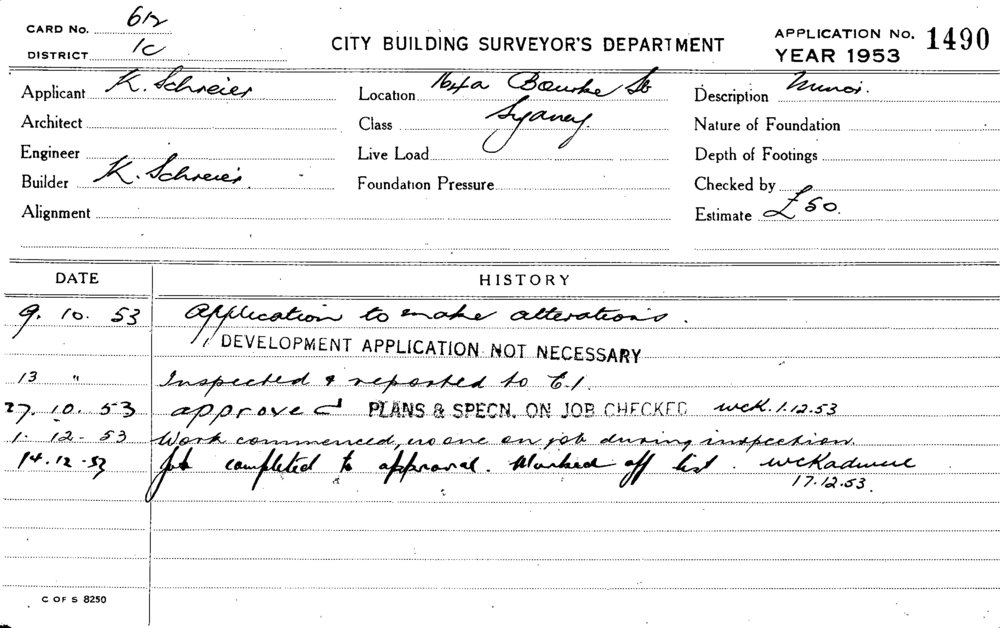 CARD No. 612
DISTRICT 1C
CITY BUILDING SURVEYOR'S DEPARTMENT
APPLICATION No. 1490
YEAR 1953
Applicant K. Schreier
Location 164a Bourke St
Description Minor.
Architect
Class Sydney.
Nature of Foundation
Engineer
Live Load
Depth of Footings
Builder K. Schreier.
Foundation Pressure
Checked by
Alignment
Estimate £50.
DATE HISTORY
9. 10. 53 Application to make alterations.
DEVELOPMENT APPLICATION NOT NECESSARY
13 " Inspected & reported to C.I.
27. 10. 53 approved PLANS & SPECN. ON JOB CHECKED WCK. 1.12.53
1. 12. 53 Work commenced, no one on job during inspection.
14.12.53 Job completed to approval. Marked off list.
17.12.53.
C OF S 8250